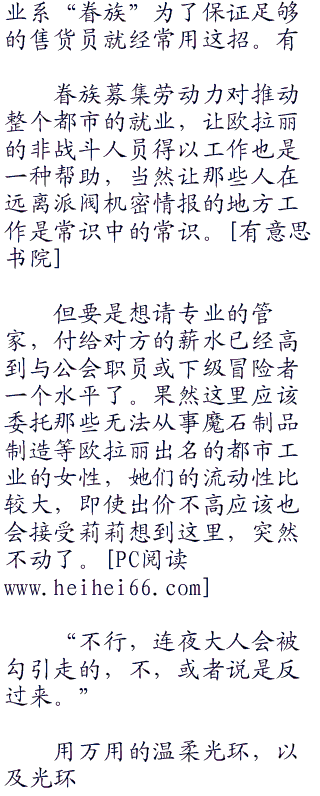 业系“眷族”为了保证足够
的售货员就经常用这招。有
眷族募集劳动力对推动
整个都市的就业，让欧拉丽
的非战斗人员得以工作也是
一种帮助，当然让那些人在
远离派阀机密情报的地方工
作是常识中的常识。[有意思
书院]
但要是想请专业的管
家，付给对方的薪水已经高
到与公会职员或下级冒险者
一个水平了。果然这里应该
委托那些无法从事魔石制品
制造等欧拉丽出名的都市工
业的女性，她们的流动性比
较大，即使出价不高应该也
会接受莉莉想到这里，突然
不动了。[PC阅读
www.heihei66.com]
“不行，连夜大人会被
勾引走的，不，或者说是反
过来。”
用万用的温柔光环，以
及光环